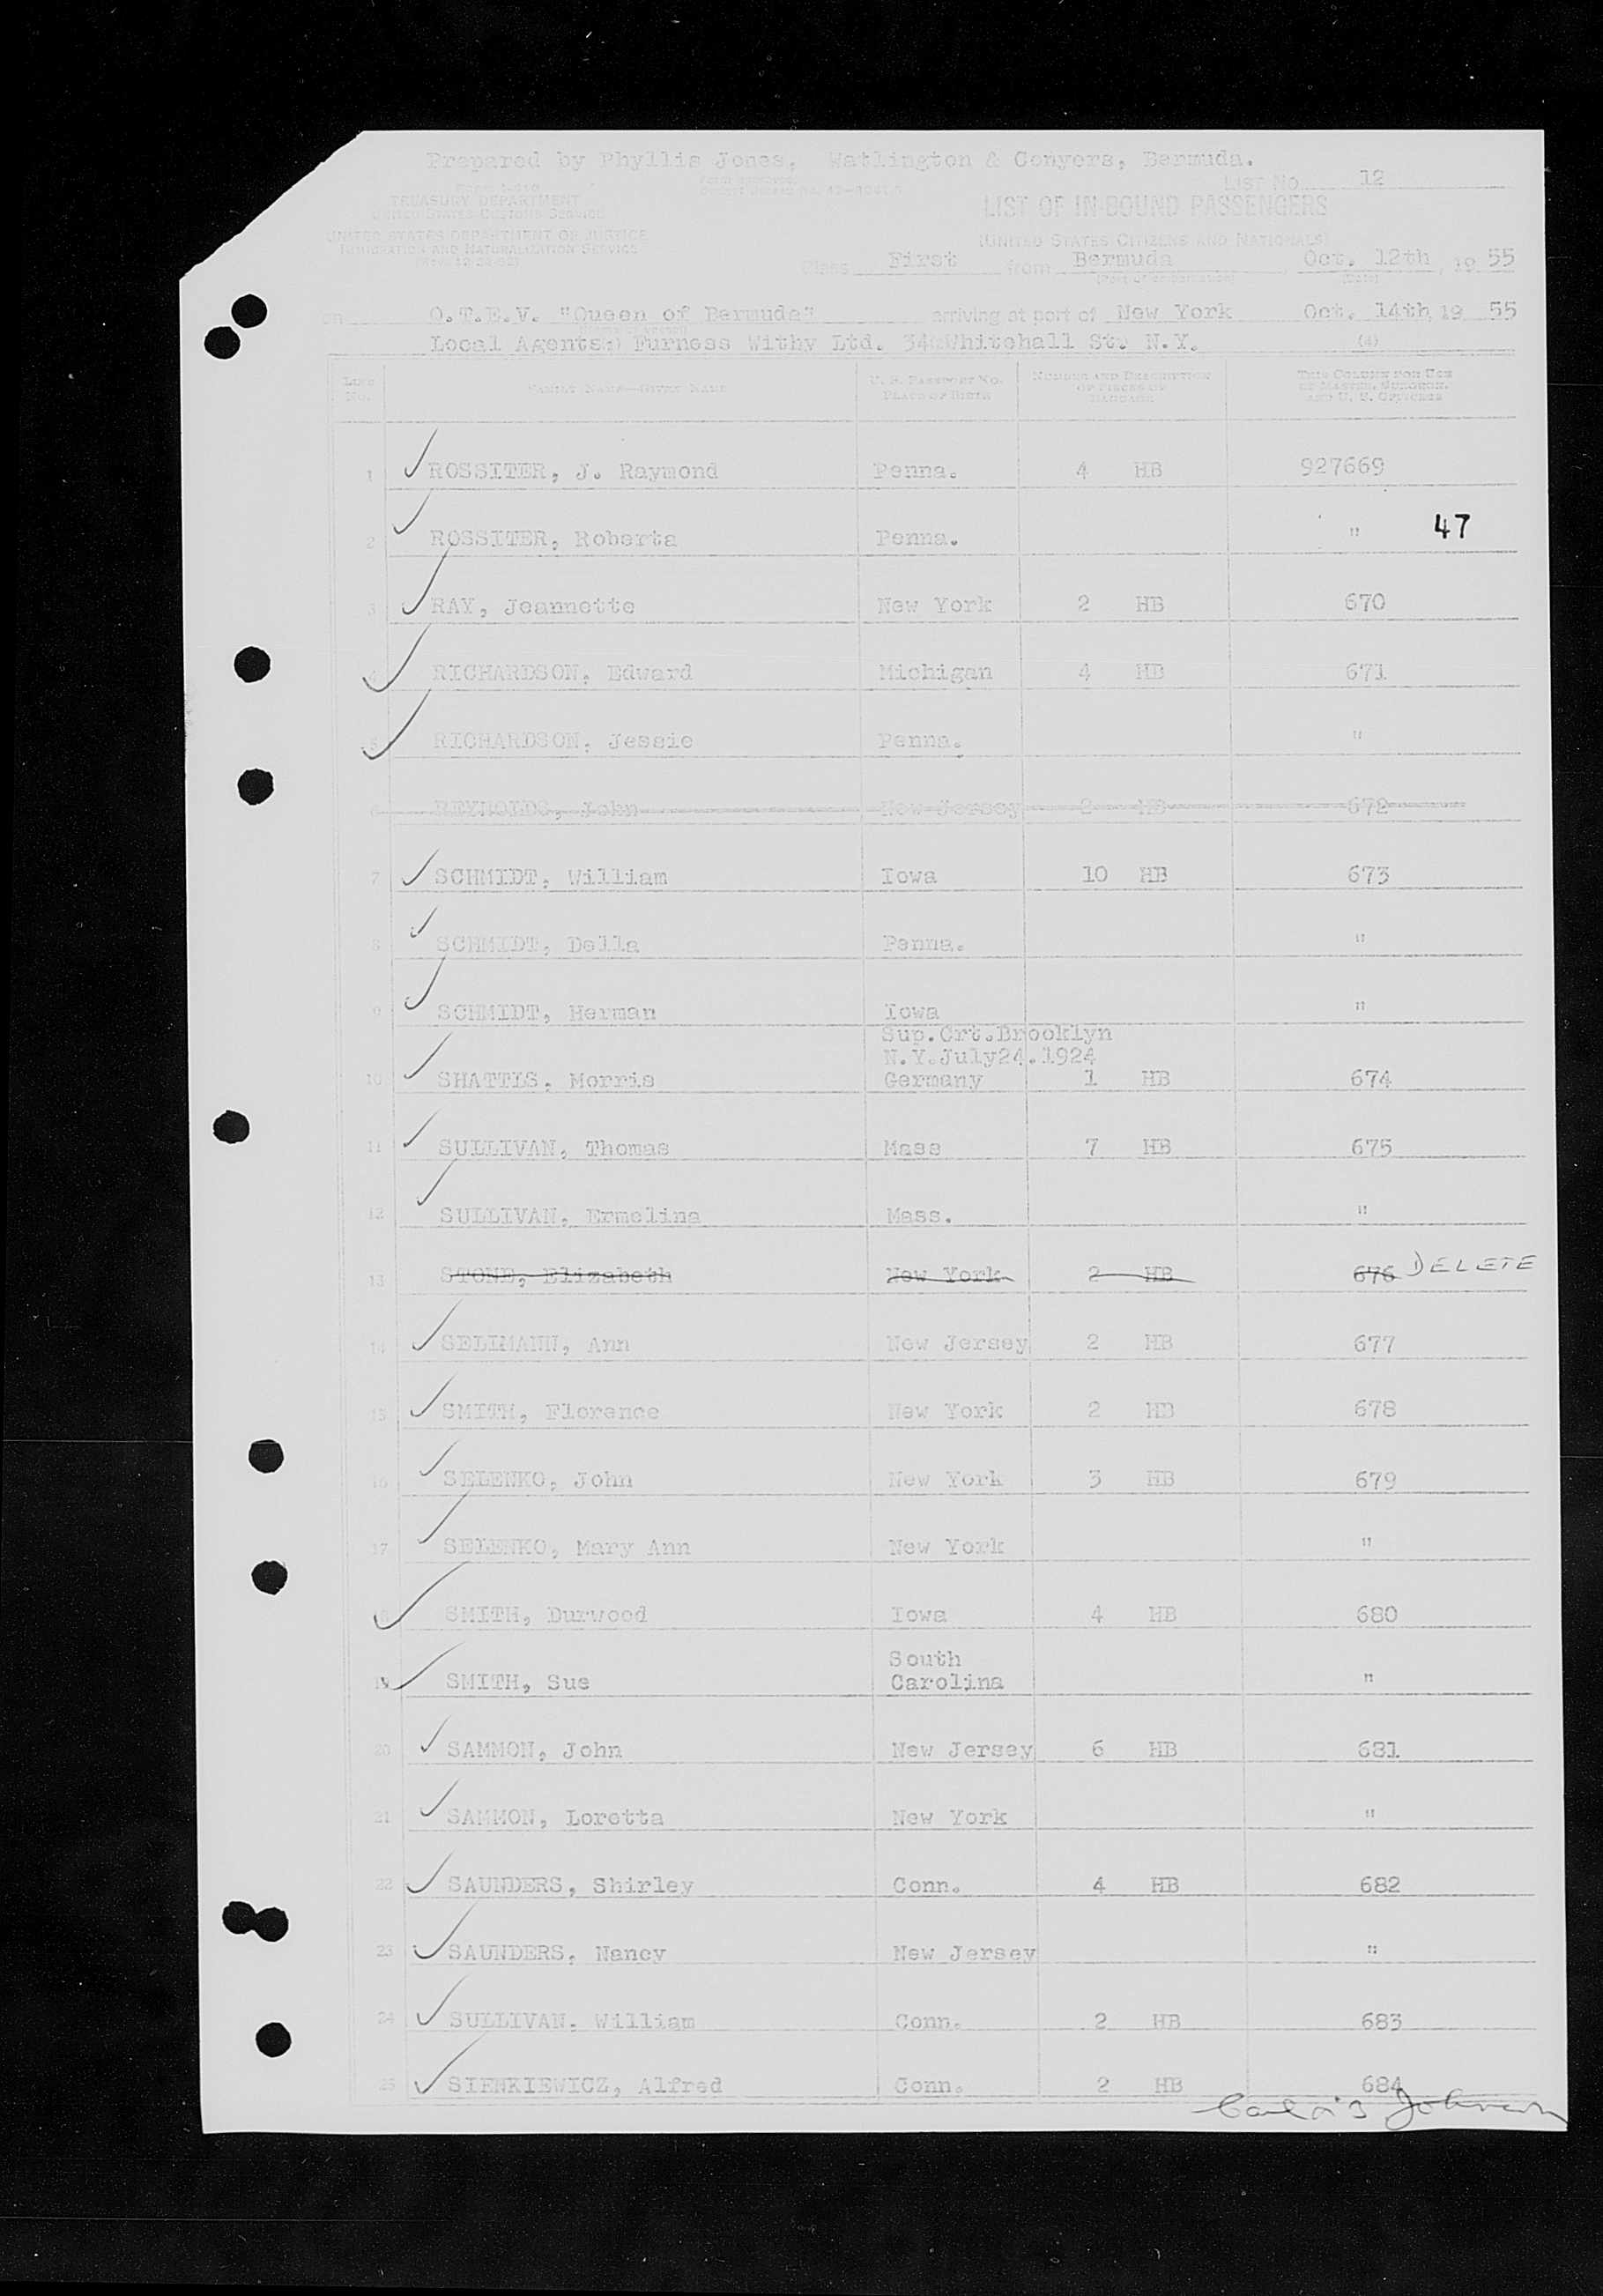 Prepared by Phyllis Jones, Watlington & Conyers, Bermuda.
LIST No. 12
TREASURY DEPARTMENT
UNITED STATES CUSTOMS SERVICE
LIST OF IN-BOUND PASSENGERS
UNITED STATES DEPARTMENT OF JUSTICE
IMMIGRATION AND NATURALIZATION SERVICE
(UNITED STATES CITIZENS AND NATIONALS)
Class First from Bermuda Oct. 12th, 19 55
(Port of embarkation) (Date)
on Q.T.E.V. "Queen of Bermuda" arriving at port of New York Oct. 14th, 19 55
Local Agents: Furness Withy Ltd. 34 Whitehall St. N.Y. (4)
LINE No. FAMILY NAME—GIVEN NAME U. S. PASSPORT NO. PLACE OF BIRTH NUMBER AND DESCRIPTION OF PIECES OF BAGGAGE THIS COLUMN FOR USE OF MASTER, SURGEON, AND U. S. OFFICERS
1 ROSSITER, J. Raymond Penna. 4 HB 927669
2 ROSSITER, Roberta Penna. " 47
3 RAY, Jeannette New York 2 HB 670
4 RICHARDSON, Edward Michigan 4 HB 671
5 RICHARDSON, Jessie Penna. "
6 REYNOLDS, John New Jersey 2 HB 672
7 SCHMIDT, William Iowa 10 HB 673
8 SCHMIDT, Della Penna. "
9 SCHMIDT, Herman Iowa "
Sup.Crt.Brooklyn
N.Y.July24.1924
10 SHATTLS, Morris Germany 1 HB 674
11 SULLIVAN, Thomas Mass 7 HB 675
12 SULLIVAN, Ermelina Mass. "
13 STONE, Elizabeth New York 2 HB 676 DELETE
14 SELLMANN, Ann New Jersey 2 HB 677
15 SMITH, Florence New York 2 HB 678
16 SELENKO, John New York 3 HB 679
17 SELENKO, Mary Ann New York "
18 SMITH, Durwood Iowa 4 HB 680
South
19 SMITH, Sue Carolina "
20 SAMMON, John New Jersey 6 HB 681
21 SAMMON, Loretta New York "
22 SAUNDERS, Shirley Conn. 4 HB 682
23 SAUNDERS, Nancy New Jersey "
24 SULLIVAN, William Conn. 2 HB 683
25 SIENKIEWICZ, Alfred Conn. 2 HB 684
Johnson